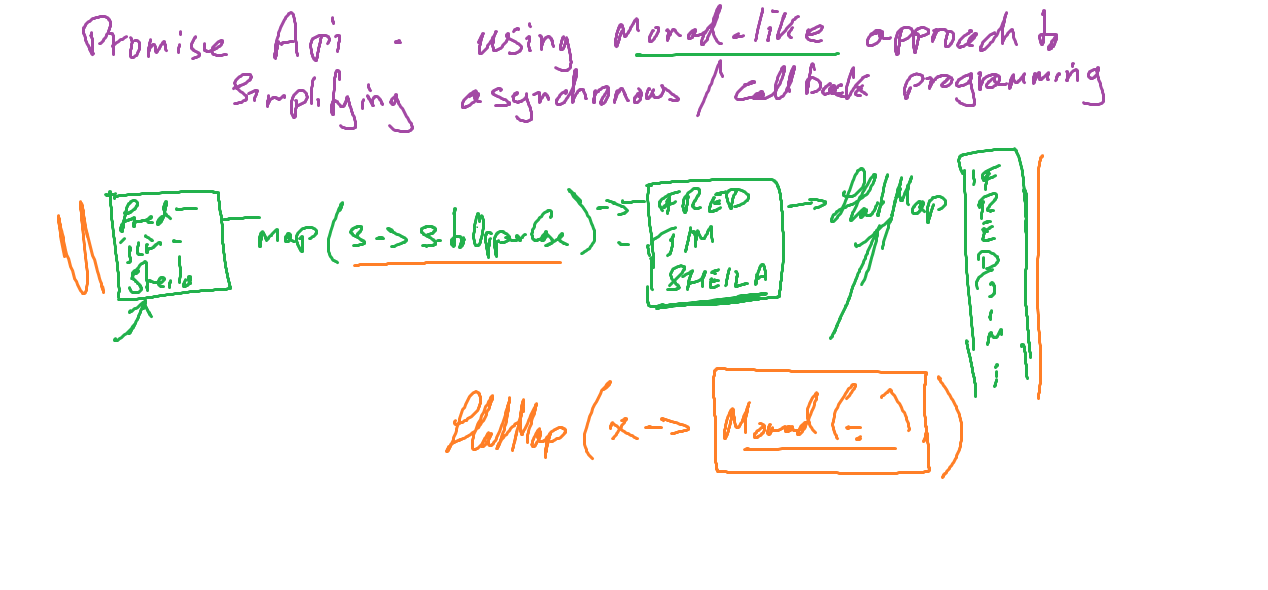 Promise Api - using Monad-like approach to
simplifying asynchronous / callback programming
Fred
Jim
Sheila
map (s -> s toUpperCase) ->
FRED
JIM
SHEILA
-> flatMap
F
R
E
D
J
I
M
flatMap (x -> Monad (- ))